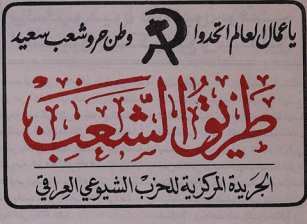 يا عمال العالم اتحدوا وطن حر وشعب سعيد
طريق الشعب
الجريدة المركزية للحزب الشيوعي العراقي